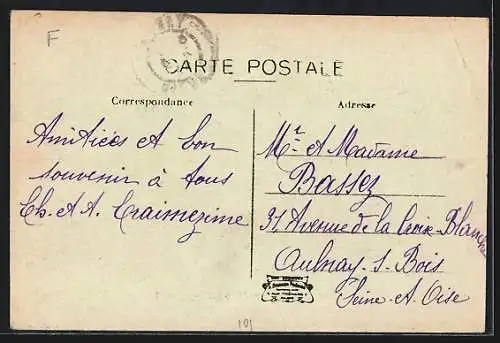 F
CARTE POSTALE
Correspondance
Amitiées et bon
souvenir à tous
Ch. et A. Craimezime
Adresse
Mr et Madame
Bassez
37 Avenue de la Croix-Blanche
Aulnay-s-Bois
Seine-et-Oise